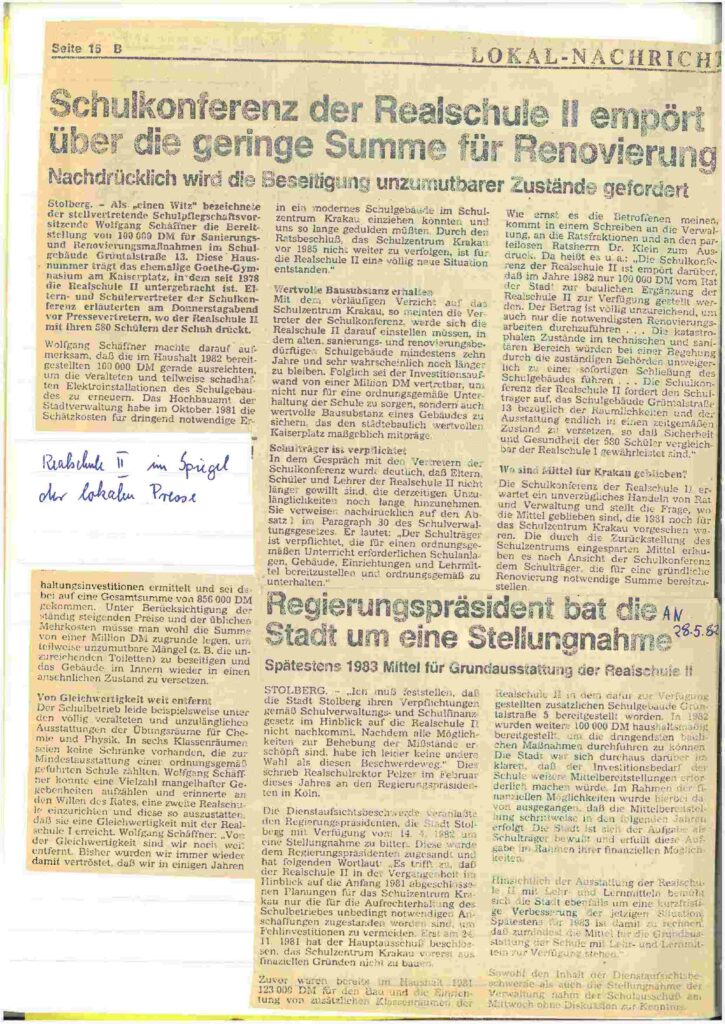 Seite 16 B
LOKAL-NACHRICHT
Schulkonferenz der Realschule II empört
über die geringe Summe für Renovierung
Nachdrücklich wird die Beseitigung unzumutbarer Zustände gefordert
Stolberg. – Als „einen Witz" bezeichnete
der stellvertretende Schulpflegschaftsvor-
sitzende Wolfgang Schäffner die Bereit-
stellung von 100 000 DM für Sanierungs-
und Renovierungsmaßnahmen im Schul-
gebäude Grüntalstraße 13. Diese Haus-
nummer trägt das ehemalige Goethe-Gym-
nasium am Kaiserplatz, in dem seit 1978
die Realschule II untergebracht ist. El-
tern- und Schülervertreter der Schulkon-
ferenz erläuterten am Donnerstagabend
vor Pressevertretern, wo der Realschule II
mit ihren 580 Schülern der Schuh drückt.
Wolfgang Schäffner machte darauf auf-
merksam, daß die im Haushalt 1982 bereit-
gestellten 100 000 DM gerade ausreichten,
um die veralteten und teilweise schadhaf-
ten Elektroinstallationen des Schulgebäu-
des zu erneuern. Das Hochbauamt der
Stadtverwaltung habe im Oktober 1981 die
Schätzkosten für dringend notwendige Er-
Realschule II im Spiegel
der lokalen Presse
haltungsinvestitionen ermittelt und sei da-
bei auf eine Gesamtsumme von 856 000 DM
gekommen. Unter Berücksichtigung der
ständig steigenden Preise und der üblichen
Mehrkosten müsse man wohl die Summe
von einer Million DM zugrunde legen, um
teilweise unzumutbare Mängel (z. B. die un-
zureichenden Toiletten) zu beseitigen und
das Gebäude im Innern wieder in einen
ansehnlichen Zustand zu versetzen.
Von Gleichwertigkeit weit entfernt
Der Schulbetrieb leide beispielsweise unter
den völlig veralteten und unzulänglichen
Ausstattungen der Übungsräume für Che-
mie und Physik. In sechs Klassenräumen
seien keine Schränke vorhanden, die zur
Mindestausstattung einer ordnungsgemäß
geführten Schule zählten. Wolfgang Schäff-
ner konnte eine Vielzahl mangelhafter Ge-
gebenheiten aufzählen und erinnerte an
den Willen des Rates, eine zweite Realschu-
le einzurichten und diese so auszustatten,
daß sie eine Gleichwertigkeit mit der Real-
schule I erreicht. Wolfgang Schäffner: „Von
der Gleichwertigkeit sind wir noch weit
entfernt. Bisher wurden wir immer wieder
damit vertröstet, daß wir in einigen Jahren
in ein modernes Schulgebäude im Schul-
zentrum Krakau einziehen könnten und
uns so lange gedulden müßten. Durch den
Ratsbeschluß, das Schulzentrum Krakau
vor 1985 nicht weiter zu verfolgen, ist für
die Realschule II eine völlig neue Situation
entstanden."
Wertvolle Bausubstanz erhalten
Mit dem vorläufigen Verzicht auf das
Schulzentrum Krakau, so meinten die Ver-
treter der Schulkonferenz, werde sich die
Realschule II darauf einstellen müssen, in
dem alten, sanierungs- und renovierungsbe-
dürftigen Schulgebäude mindestens zehn
Jahre und sehr wahrscheinlich noch länger
zu bleiben. Folglich sei der Investitionsauf-
wand von einer Million DM vertretbar, um
nicht nur für eine ordnungsgemäße Unterhal-
tung der Schule zu sorgen, sondern auch
wertvolle Bausubstanz eines Gebäudes zu
sichern, das den städtebaulich wertvollen
Kaiserplatz maßgeblich mitpräge.
Schulträger ist verpflichtet
In dem Gespräch mit den Vertretern der
Schulkonferenz wurde deutlich, daß Eltern,
Schüler und Lehrer der Realschule II nicht
länger gewillt sind, die derzeitigen Unzu-
länglichkeiten noch lange hinzunehmen.
Sie verweisen nachdrücklich auf den Ab-
satz 1 im Paragraph 30 des Schulverwal-
tungsgesetzes. Er lautet: „Der Schulträger
ist verpflichtet, die für einen ordnungsge-
mäßen Unterricht erforderlichen Schulanla-
gen, Gebäude, Einrichtungen und Lehrmit-
tel bereitzustellen und ordnungsgemäß zu
unterhalten."
Wie ernst es die Betroffenen meinen,
kommt in einem Schreiben an die Verwal-
tung, an die Ratsfraktionen und an den par-
teilosen Ratsherrn Dr. Klein zum Aus-
druck. Da heißt es u. a.: „Die Schulkonfe-
renz der Realschule II ist empört darüber,
daß im Jahre 1982 nur 100 000 DM vom Rat
der Stadt zur baulichen Ergänzung der
Realschule II zur Verfügung gestellt wer-
den. Der Betrag ist völlig unzureichend, um
auch nur die notwendigsten Renovierungs-
arbeiten durchzuführen . . . Die katastro-
phalen Zustände im technischen und sani-
tären Bereich würden bei einer Begehung
durch die zuständigen Behörden unweiger-
lich zu einer sofortigen Schließung des
Schulgebäudes führen . . . Die Schulkon-
ferenz der Realschule II fordert den Schul-
träger auf, das Schulgebäude Grüntalstraße
13 bezüglich der Räumlichkeiten und der
Ausstattung endlich in einen zeitgemäßen
Zustand zu versetzen, so daß Sicherheit
und Gesundheit der 580 Schüler vergleich-
bar der Realschule I gewährleistet sind."
Wo sind Mittel für Krakau geblieben?
Die Schulkonferenz der Realschule II er-
wartet ein unverzügliches Handeln von Rat
und Verwaltung und stellt die Frage, wo
die Mittel geblieben sind, die 1981 noch für
das Schulzentrum Krakau vorgesehen wa-
ren. Die durch die Zurückstellung des
Schulzentrums eingesparten Mittel erlau-
ben es nach Ansicht der Schulkonferenz
dem Schulträger, die für eine gründliche
Renovierung notwendige Summe bereitzu-
stellen.
Regierungspräsident bat die
Stadt um eine Stellungnahme
AN
28.5.82
Spätestens 1983 Mittel für Grundausstattung der Realschule II
STOLBERG. – „Ich muß feststellen, daß
die Stadt Stolberg ihren Verpflichtungen
gemäß Schulverwaltungs- und Schulfinanz-
gesetz im Hinblick auf die Realschule II
nicht nachkommt. Nachdem alle Möglich-
keiten zur Behebung der Mißstände er-
schöpft sind, habe ich leider keine andere
Wahl als diesen Beschwerdeweg." Dies
schrieb Realschulrektor Pelzer im Februar
dieses Jahres an den Regierungspräsiden-
ten in Köln.
Die Dienstaufsichtsbeschwerde veranlaßte
den Regierungspräsidenten, die Stadt Stol-
berg mit Verfügung vom 14. 4. 1982 um
eine Stellungnahme zu bitten. Diese wurde
dem Regierungspräsidenten zugesandt und
hat folgenden Wortlaut: „Es trifft zu, daß
der Realschule II in der Vergangenheit im
Hinblick auf die Anfang 1981 abgeschlosse-
nen Planungen für das Schulzentrum Kra-
kau nur die für die Aufrechterhaltung des
Schulbetriebes unbedingt notwendigen An-
schaffungen zugestanden worden sind, um
Fehlinvestitionen zu vermeiden. Erst am 24.
11. 1981 hat der Hauptausschuß beschlos-
sen, das Schulzentrum Krakau vorerst aus
finanziellen Gründen nicht zu bauen.
Zuvor waren bereits im Haushalt 1981
123 000 DM für den Bau und die Einrich-
tung von zusätzlichen Klassenräumen der
Realschule II in dem dafür zur Verfügung
gestellten zusätzlichen Schulgebäude Grün-
talstraße 5 bereitgestellt worden. In 1982
wurden weitere 100 000 DM haushaltsmäßig
bereitgestellt, um die dringendsten bauli-
chen Maßnahmen durchführen zu können.
Die Stadt war sich durchaus darüber im
klaren, daß der Investitionsbedarf der
Schule weitere Mittelbereitstellungen erfor-
derlich machen würde. Im Rahmen der fi-
nanziellen Möglichkeiten wurde hierbei da-
von ausgegangen, daß die Mittelbereitstel-
lung schrittweise in den folgenden Jahren
erfolgt. Die Stadt ist sich der Aufgabe als
Schulträger bewußt und erfüllt diese Auf-
gabe im Rahmen ihrer finanziellen Möglich-
keiten.
Hinsichtlich der Ausstattung der Realschu-
le II mit Lehr- und Lernmitteln bemüht
sich die Stadt ebenfalls um eine kurzfristi-
ge Verbesserung der jetzigen Situation.
Spätestens für 1983 ist damit zu rechnen,
daß zumindest die Mittel für die Grundaus-
stattung der Schule mit Lehr- und Lernmit-
teln zur Verfügung stehen."
Sowohl den Inhalt der Dienstaufsichtsbe-
schwerde als auch die Stellungnahme der
Verwaltung nahm der Schulausschuß am
Mittwoch ohne Diskussion zur Kenntnis.